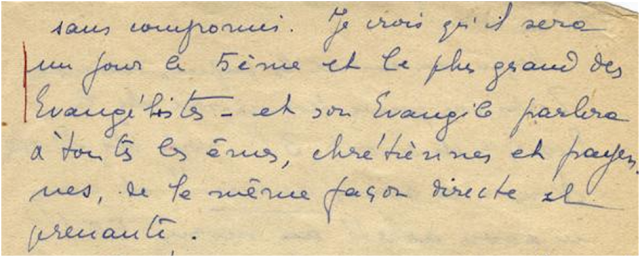 sans compromis. Je crois qu'il sera
un jour le 5ème et le plus grand des
Evangélistes - et son Evangile parlera
à toutes les âmes, chrétiennes et payen-
nes, de la même façon directe et
prenante.